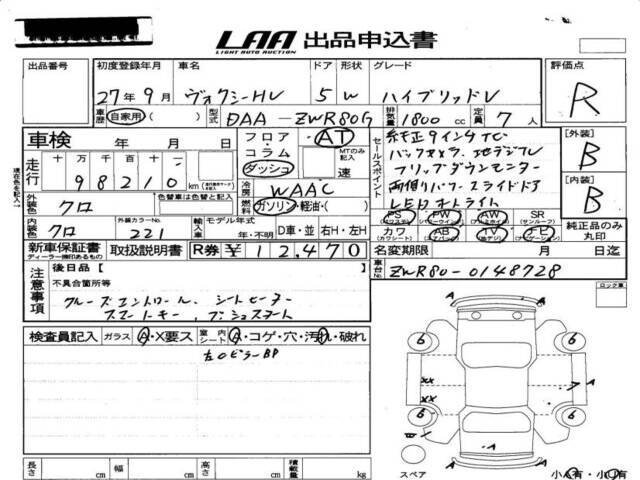 LAA 出品申込書
LIGHT AUTO AUCTION
出品番号 初度登録年月 車名 ドア 形状 グレード 評価点
27年9月 ヴォクシーHV 5 W ハイブリッドV R
車歴 自家用 ( ) 型式 DAA-ZWR80G 排気量 1800 cc 定員 7人
車検 年 月 日
フロア・AT
コラム
ダッシュ
MTのみ記入
速
セールスポイント
純正9インチTC
バックカメラ、地デジTV
フリップダウンモニター
両側パワースライドドア
LEDオートライト
[外装] B
[内装] B
現在色を記入
走行 十万 万 千 百 十
98210 km
冷房 WAAC
燃料 ガソリン・軽油・( )
外装色 クロ ※色替車は色替と記入
内装色 クロ 外装カラーNo. 221 輸入車 モデル年式 年・不明 D車・並 右H・左H
PS PW AW SR (サンルーフ)
カワ (カワシート) AB (エアバッグ) TV ナビ (ナビゲーション)
純正品のみ丸印
新車保証書 取扱説明書 R券 ¥12,470
ディーラー捺印あるもの
名変期限 月 日迄
車台No. ZWR80-0148728
注意事項
後日品【 】
不具合箇所等
クルーズコントロール、シートヒーター
スマートキー、プッシュスタート
ロック車
検査員記入 ガラス A・X要ス 室内シート A・コゲ・穴・汚れ・破れ
左CピラーBP
A
6 6
XX
XX
A
6 6
A
A
スペア
小A有・小U有
長さ cm 幅 cm 高さ cm 積載量 kg